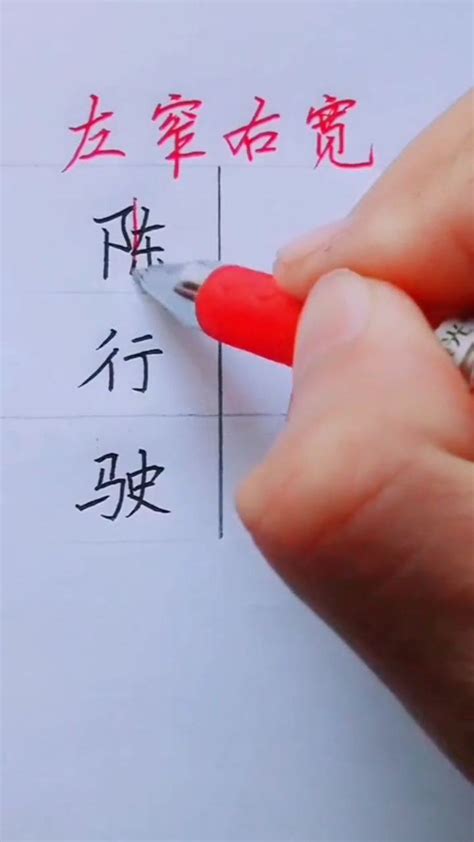 左窄右宽
陈
行
驶